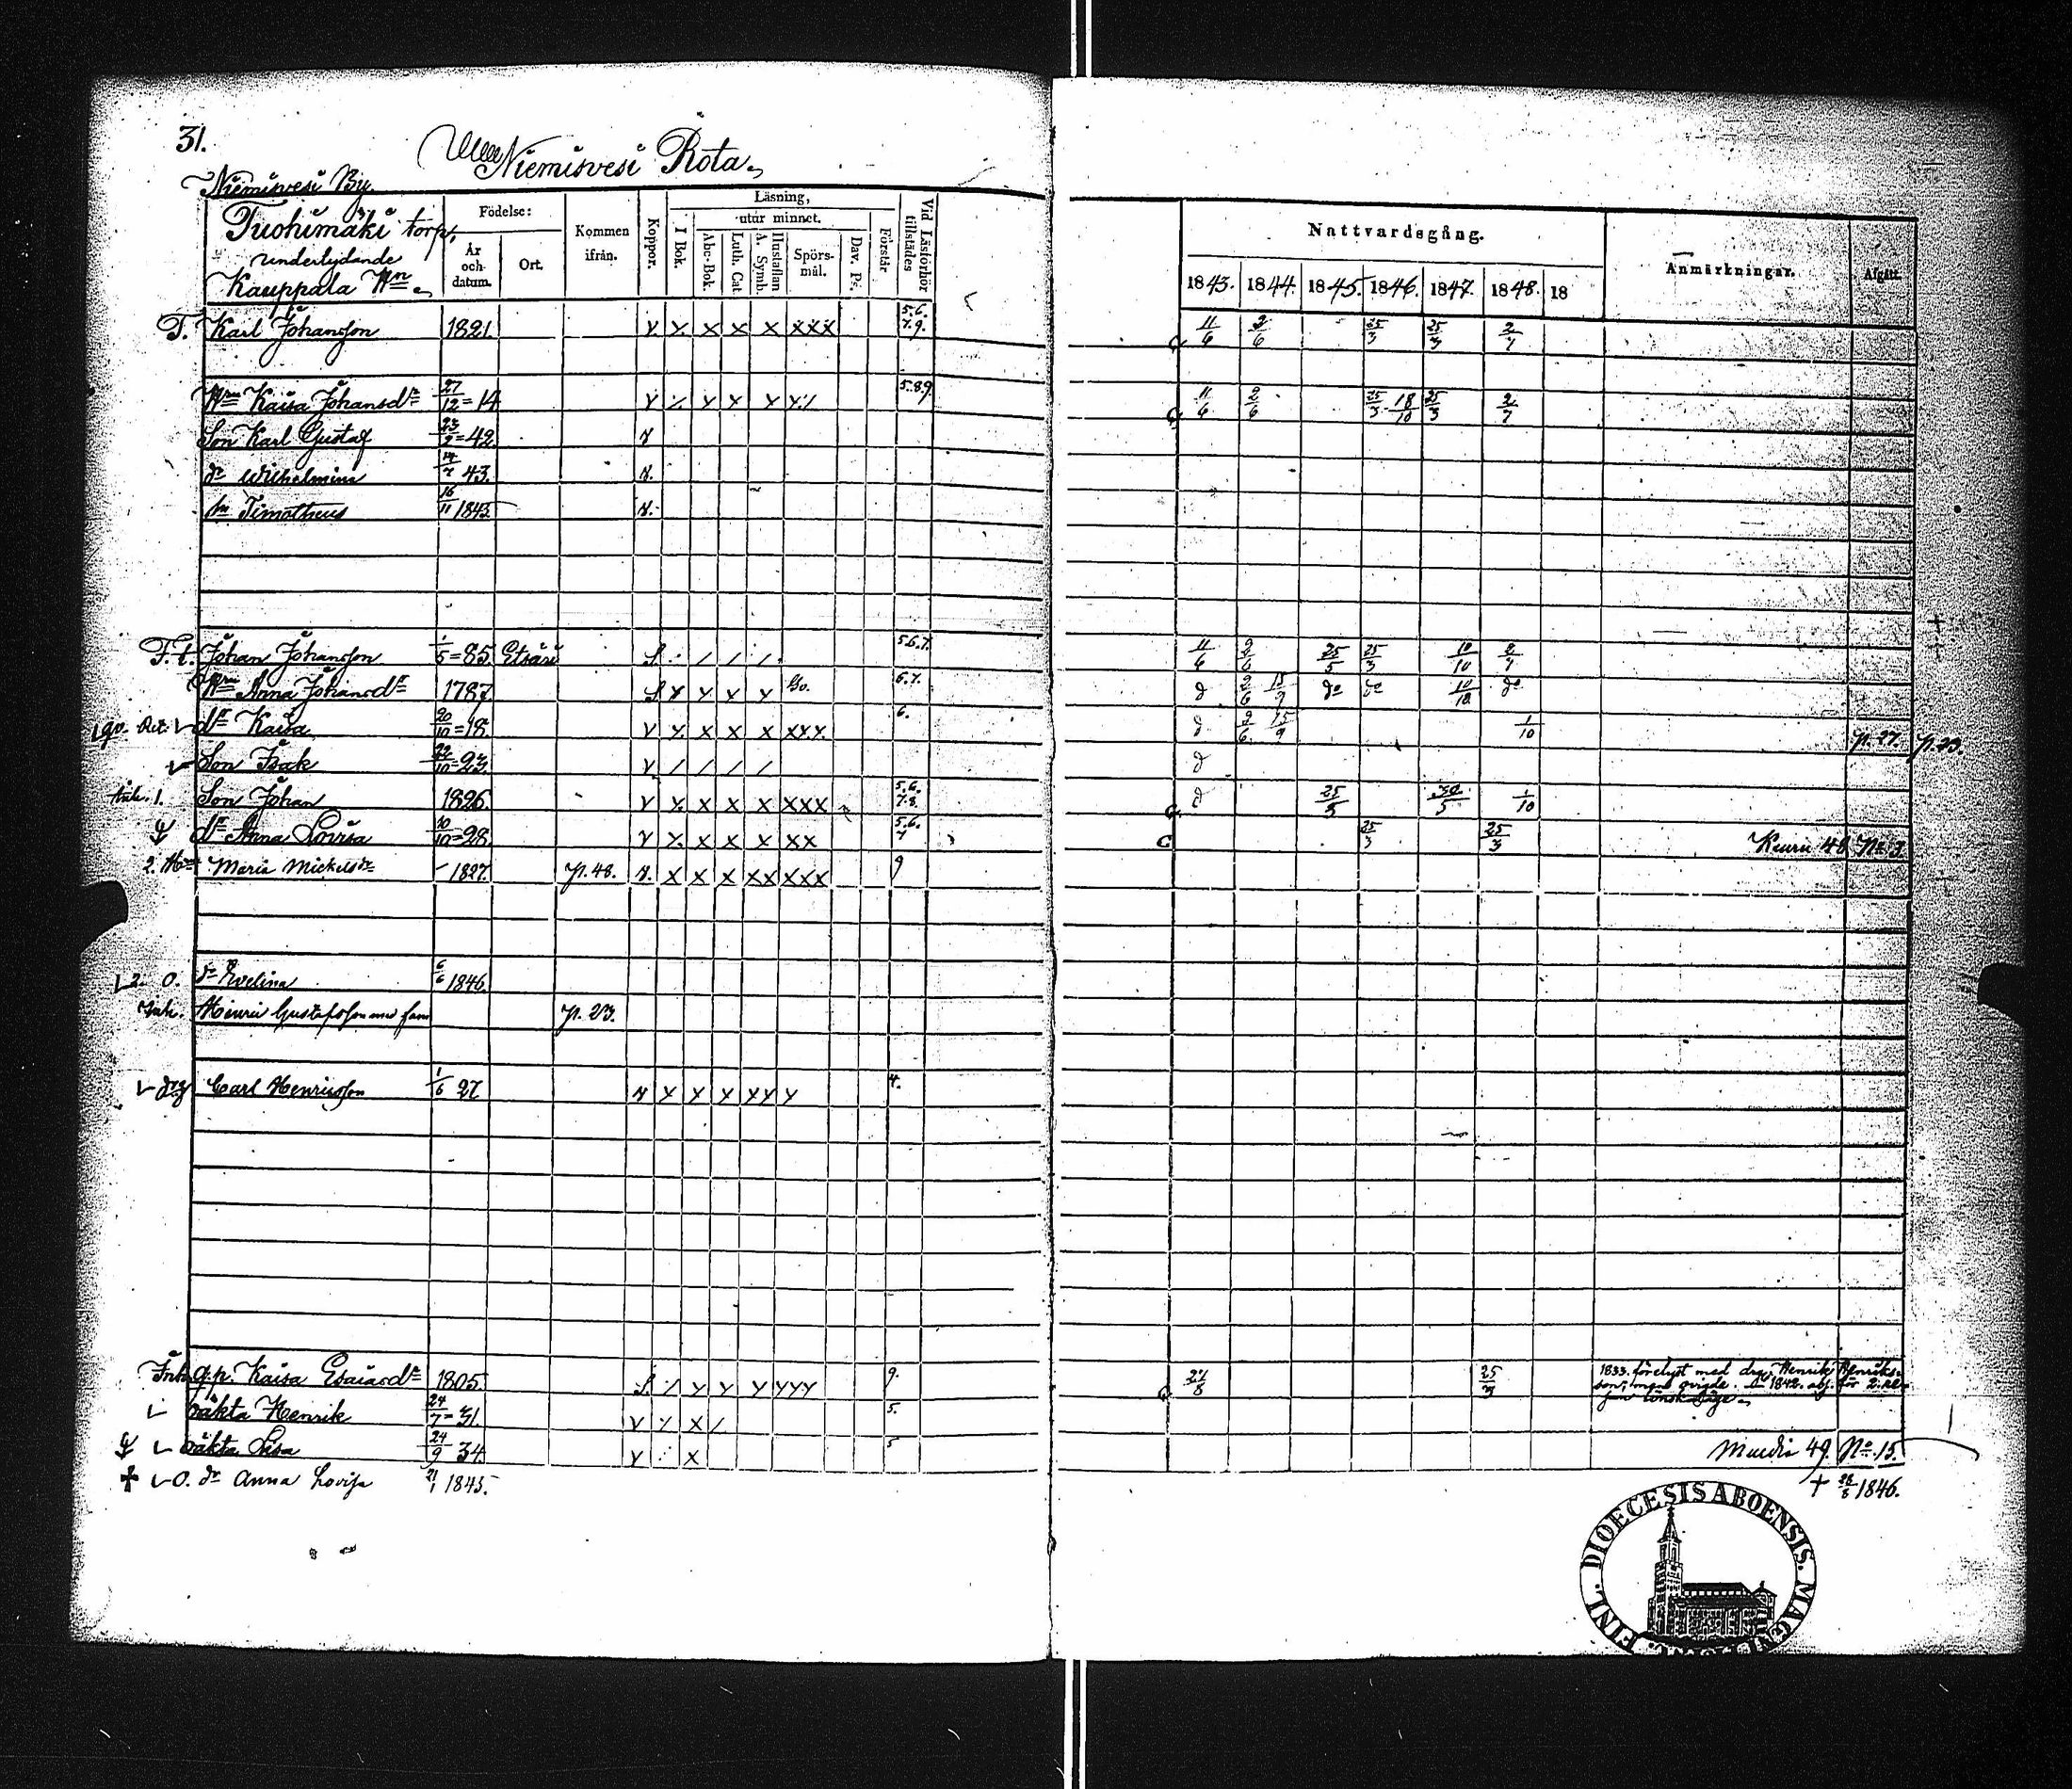 31.
Niemisvesi Rota.
Niemisvesi By
Tuohimäki torp,
underlydande
Kauppala Hn
Födelse:
År och datum.
Ort.
Kommen ifrån.
Koppor.
Läsning,
I Bok.
utur minnet.
Abc-Bok.
Luth. Cat.
Hustaflan A. Symb.
Spörsmål.
Dav. Ps.
Förstår
Vid Läsförhör tillstädes
Nattvardsgång.
1843. 1844. 1845. 1846. 1847. 1848. 18
Anmärkningar.
Afgått.
T. Karl Johansson 1821. 5.6. 7.9. 11/6 2/6 25/3 25/3 2/7
Hru Kaisa Johansdr 27/12 = 14 5.8.9. 11/6 2/6 25/3 18/10 25/3 2/7
Son Karl Gustaf 23/2 = 42
dr Wilhelmina 43.
Timotheus 16/11 1845
F.t. Johan Johansson 1/5 = 85. Etsäri 5.6.7. 11/6 2/6 25/5 25/3 10/10 2/7
Hru Anna Johansdr 1787 6.7. 2/6 15/9 do do 10/10 do
dr Kaisa 20/10 = 18. 6. 2/6 15/9 1/10 p. 27. p. 23.
Son Isak 22/10 = 23.
Inh. 1. Son Johan 1826. 5.6. 7.8. 25/5 30/5 1/10
dr Anna Lovisa 10/10 = 28. 5.6. 7 25/3 25/3 Keuru 48 No 3.
2. Maria Mickelsdr 1827. p. 48. 9
2. O. dr Evelina 6/6 1846.
Inh. Henric Gustafsson med fam p. 23.
drg Carl Henricsson 1/6 27 4.
Inh. q.p. Kaisa Esaiasdr 1805. 9. 27/8 25/3
1833. förelyst med drg. Henrik Henriks-
son, 1842. för 2.
lönskaläge.
oäkta Henrik 24/7 = 31. 5.
oäkta Lisa 24/9 34. 5 49. No 15.
O. dr Anna Lovisa 21/1 1845. † 28/8 1846.
FINL. DIOECESIS ABOENSIS. MAGNI